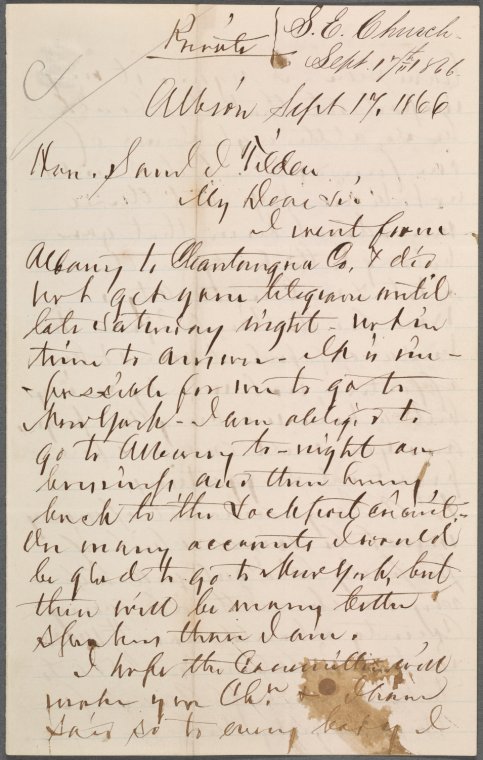 Private
S. E. Church
Sept. 17th 1866.
Albion Sept 17, 1866
Hon. Saml J. Tilden
My Dear Sir
I went from
Albany to Chautauqua Co. & did
not get your telegram until
late Saturday night - not in
time to answer - It is im-
-possible for me to go to
New York - I am obliged to
go to Albany to-night on
business and then hurry
back to the Lockport circuit -
On many accounts I would
be glad to go to New York, but
there will be many better
speakers than I am.
I hope the Committee will
make you Chn & I have
said so to every body I